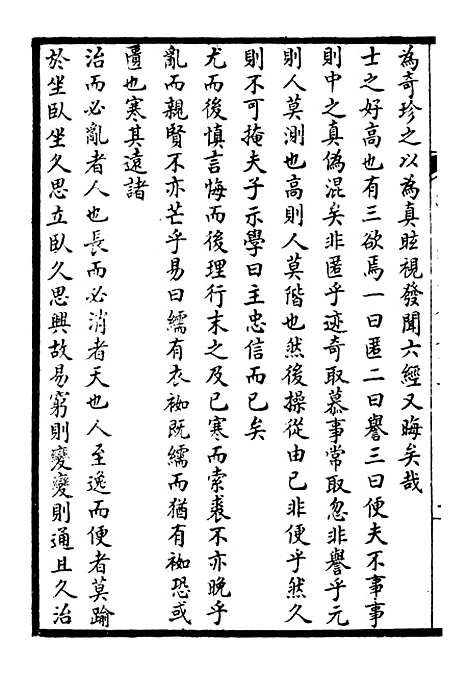 為奇珍之以為真眩視發聞六經又晦矣哉
士之好高也有三欲焉一曰匿二曰譽三曰便夫不事事
則中之真偽混矣非匿乎迹奇取慕事常取忽非譽乎元
則人莫測也高則人莫階也然後操從由已非便乎然久
則不可掩夫子示學曰主忠信而已矣
尤而後慎言悔而後理行末之及已寒而索裘不亦晚乎
亂而親賢不亦芒乎易曰繻有衣袽既繻而猶有袽恐或
匱也寒其遠諸
治而必亂者人也長而必消者天也人至逸而便者莫踰
於坐臥坐久思立臥久思興故易窮則變變則通且久治